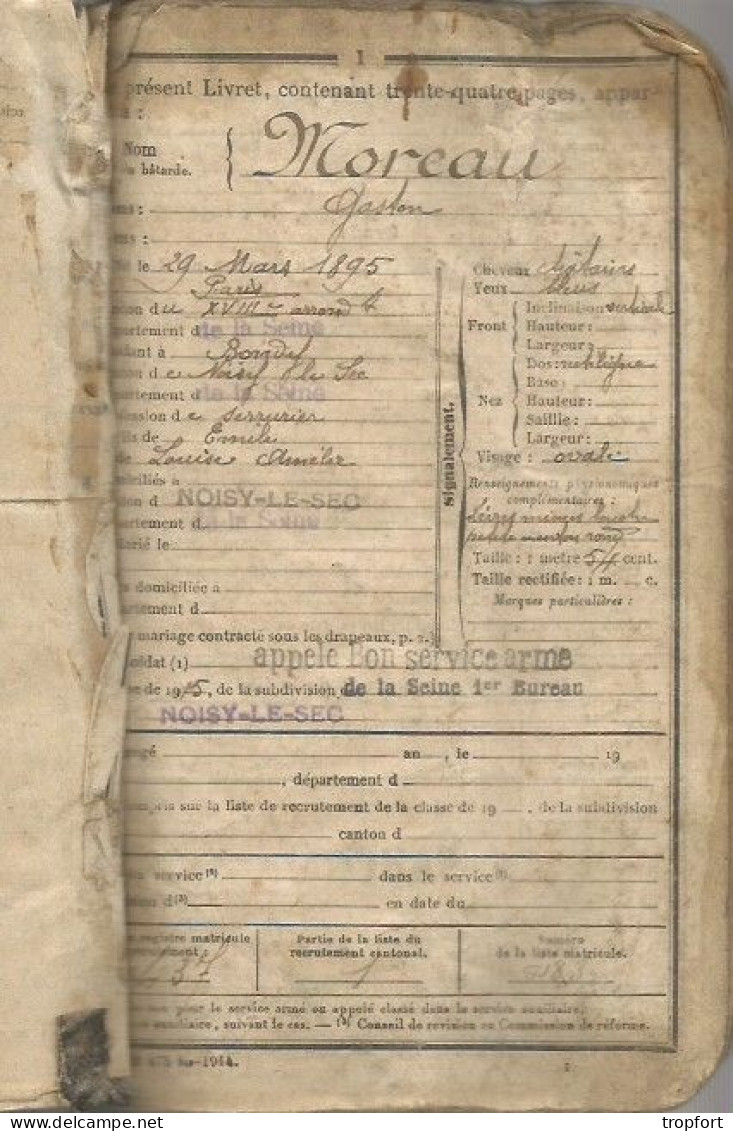 1
présent Livret, contenant trente-quatre pages, appar-
à :
Nom
bâtarde.
Moreau
Gaston
le 29 Mars 1895
Paris
du XVIIIe arrond t
partement d de la Seine
à Bondy
de Noisy le Sec
partement d de la Seine
ession de serrurier
ils de Emile
Louise Amélie
ciliés à
d NOISY-LE-SEC
partement d de la Seine
arié le
domiciliée à
artement d
mariage contracté sous les drapeaux, p. 2.)
oldat (1) appelé Bon service armé
de 1915, de la subdivision de la Seine 1er Bureau
NOISY-LE-SEC
Signalement.
Cheveux châtains
Yeux
Front
Inclinaison verticale
Hauteur :
Largeur :
Nez
Dos : rectiligne
Base :
Hauteur :
Saillie :
Largeur :
Visage : ovale
Renseignements physionomiques
complémentaires :
Lèvres minces bouche
petite menton rond
Taille : 1 mètre 54 cent.
Taille rectifiée : 1 m. c.
Marques particulières :
gagé an , le 19
, département d
compris sur la liste de recrutement de la classe de 19 , de la subdivision
canton d
service (2) dans le service (2)
d (3) en date du
registre matricule
recrutement :
Partie de la liste du
recrutement cantonal.
1
Numéro
de la liste matricule.
pour le service armé ou appelé classé dans le service auxiliaire,
auxiliaire, suivant le cas. — (3) Conseil de révision ou Commission de réforme.
-1914.
1
Copyright: tropfort